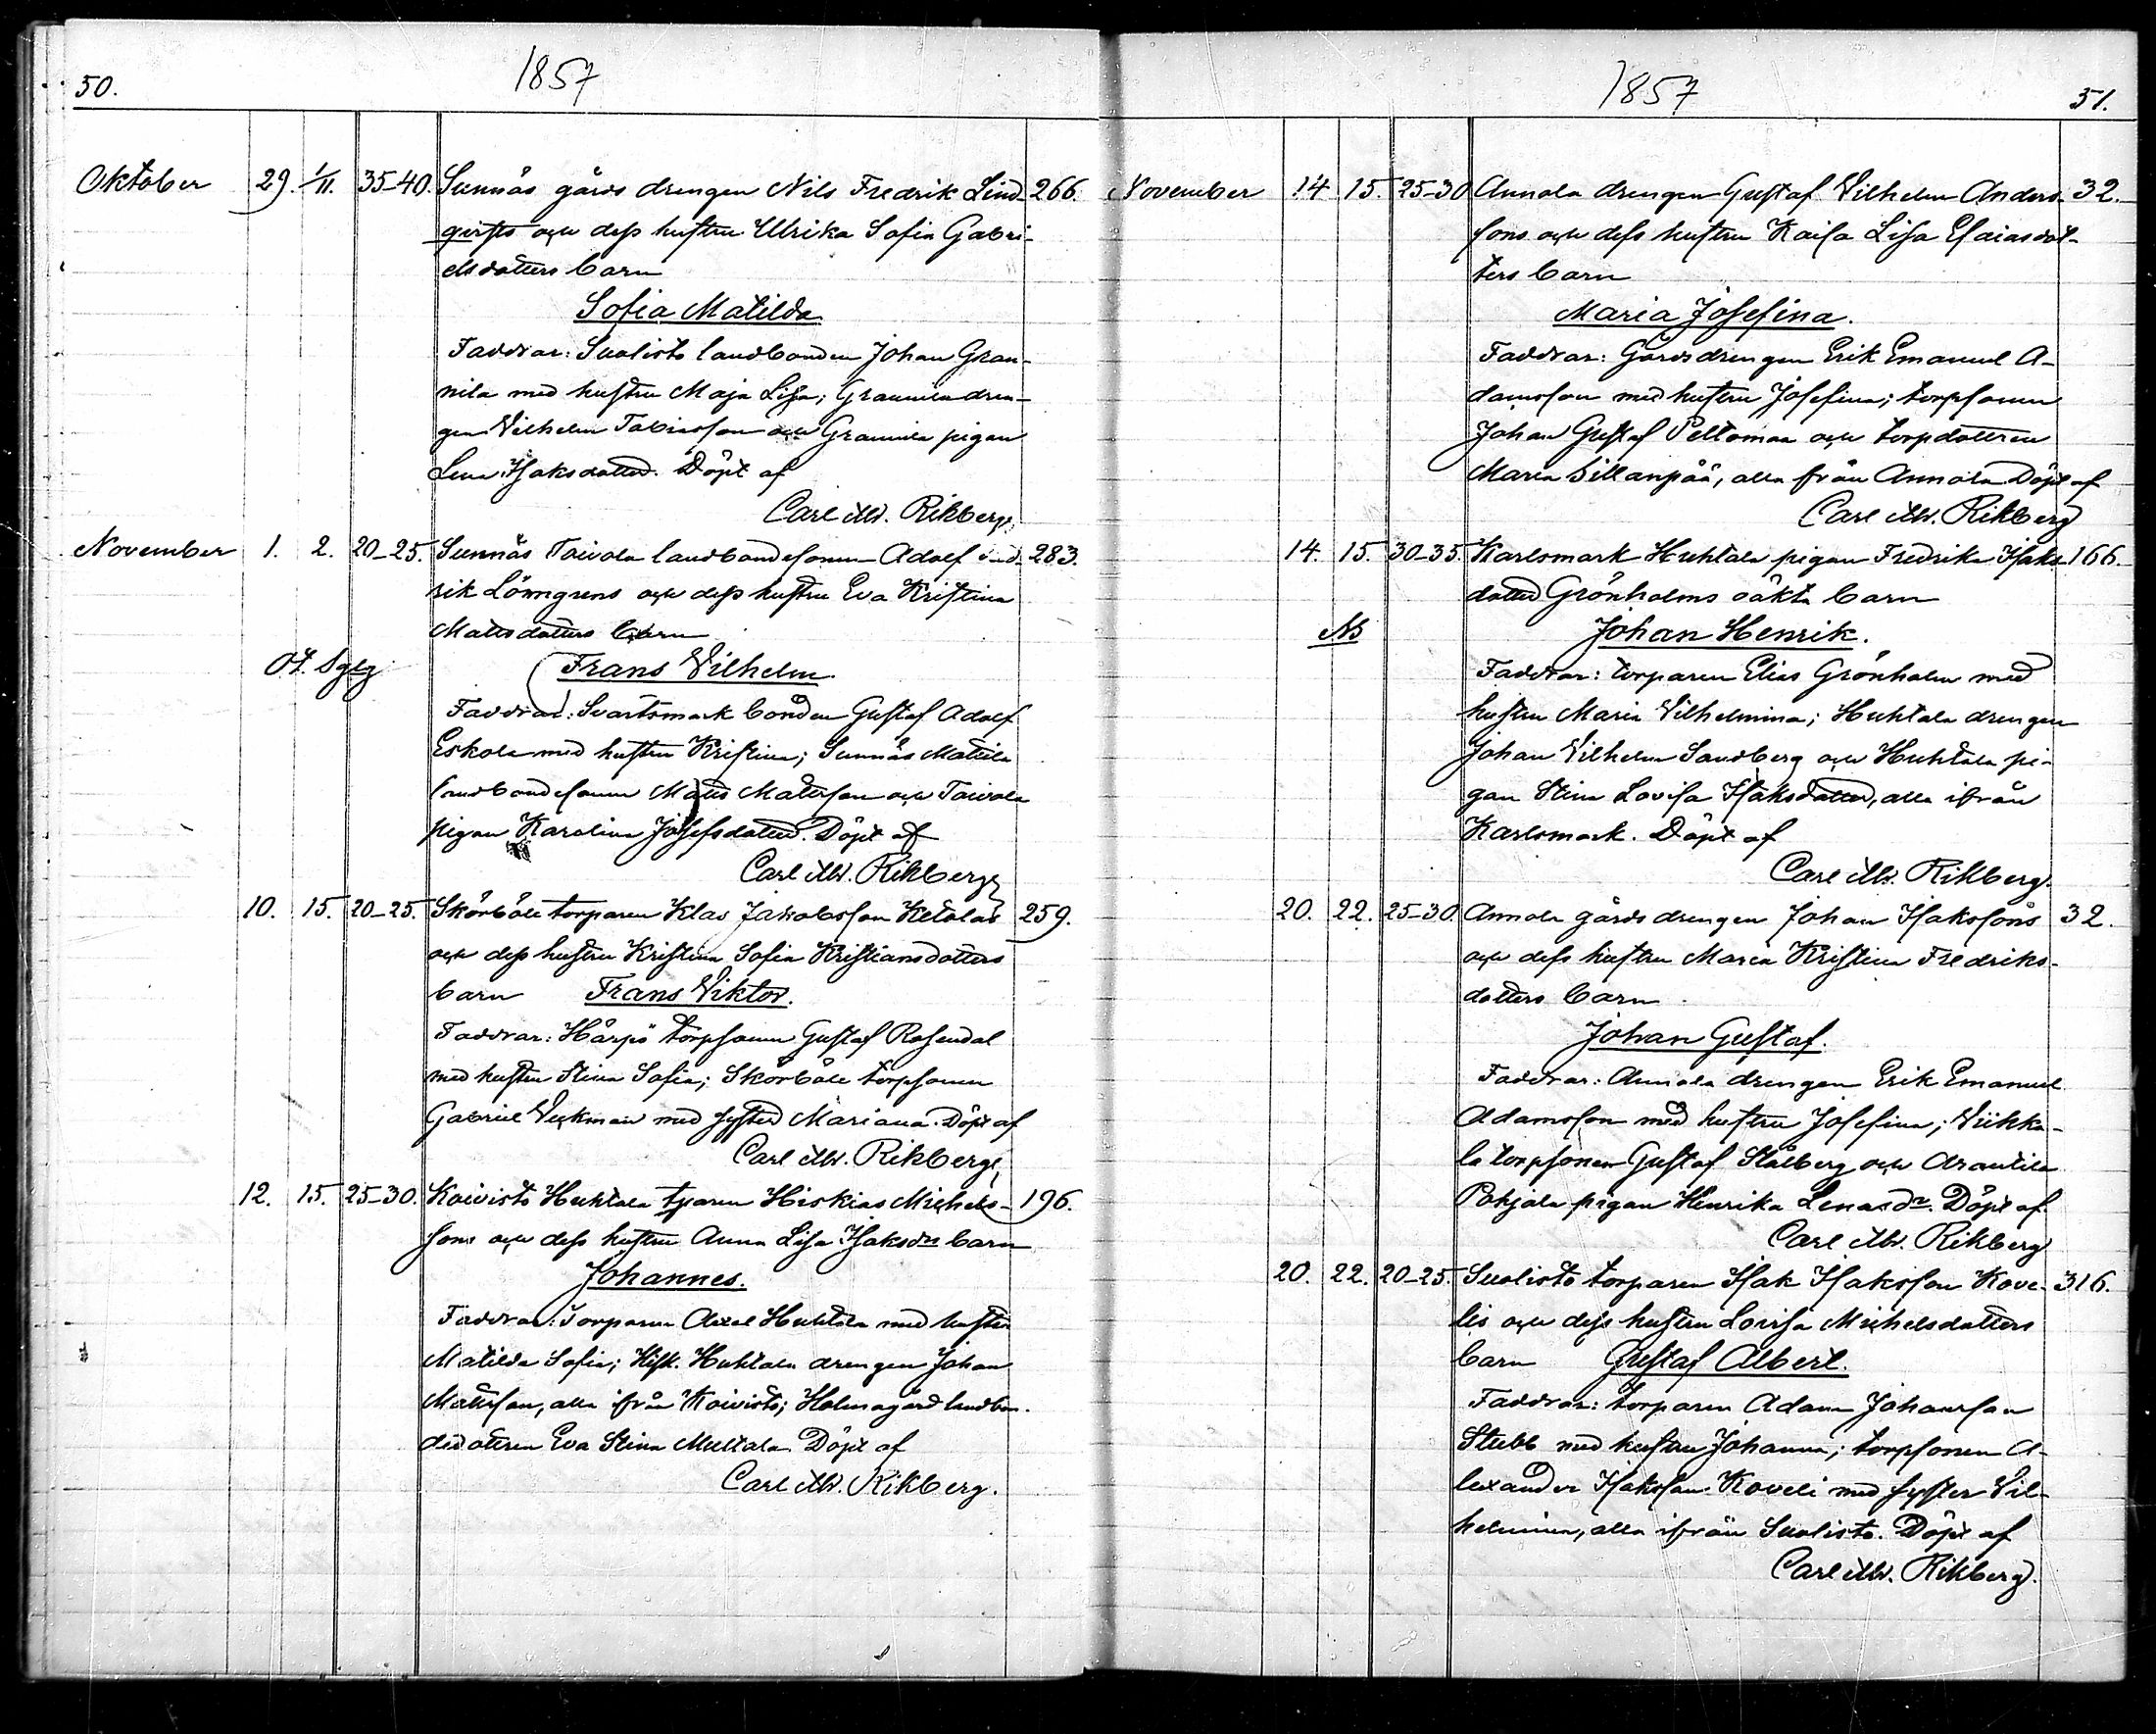 50.
1857
Oktober 29. 1/11. 35-40. Sunnäs gårds drengen Nils Fredrik Lind- 266.
qvists och dess hustru Ulrika Sofia Gabri-
elsdotters barn
Sofia Matilda
Faddrar: Suolisto landbonden Johan Gran-
nila med hustru Maja Lisa; Grannila dren-
gen Vilhelm Tobiasson och Grannila pigan
Lena Isaksdotter. Döpt af
Carl M. Rikberg.
November 1. 2. 20-25. Sunnäs Toivola landbondesonen Adolf 283.
rik Lönngrens och dess hustru Eva Kristina
Mattsdotters barn
Frans Vilhelm.
Faddrar: Svartsmark bonden Gustaf Adolf
Eskola med hustru Kristina; Sunnäs Mattila
landbondesonen Matts Mattsson och Toivola
pigan Karolina Josefsdotter. Döpt af
Carl M. Rikberg
10. 15. 20-25. Skörböle torparen Klas Jakobsson Ketolas 259.
och dess hustru Kristina Sofia Kristiansdotters
barn Frans Viktor.
Faddrar: Härpö torpsonen Gustaf Rosendal
med hustru Stina Sofia; Skörböle torpsonen
Gabriel Veckman med syster Mariana. Döpt af
Carl M. Rikberg
12. 15. 25-30. Koivisto Huhtala tparen Hiskias Michels- 196.
sons och dess hustru Anna Lisa Isaksdrs barn
Johannes.
Faddrar: Torparen Axel Huhtala med hustru
Matilda Sofia; Huhtala drengen Johan
Mattsson, alla ifrån Koivisto; Holmagård landbon-
dedottren Eva Stina Multala. Döpt af
Carl M. Rikberg.
1857
51.
November 14. 15. 25-30 Annola drengen Gustaf Vilhelm Anders- 32.
sons och dess hustru Kaisa Lisa Esaiasdot-
ters barn
Maria Josefina.
Faddrar: Gårdsdrengen Erik Emanuel A-
damsson med hustru Josefina; torpsonen
Johan Gustaf Peltomaa och torpdottren
Maria Sillanpää, alla från Annola. Döpt af
Carl M. Rikberg
14. 15. 30-35. Karlsmark Huhtala pigan Fredrika Isaks- 166.
dotter Grönholms oäkta barn
NB Johan Henrik.
Faddrar: torparen Elias Grönholm med
hustru Maria Vilhelmina; Huhtala drengen
Johan Vilhelm Sandberg och Huhtala pi-
gan Stina Lovisa Isaksdotter, alla ifrån
Karlsmark. Döpt af
Carl M. Rikberg.
20. 22. 25-30. Annola gårds drengen Johan Isakssons 32.
och dess hustru Maria Kristina Fredriks-
dotters barn
Johan Gustaf.
Faddrar: Annola drengen Erik Emanuel
Adamsson med hustru Josefina; Viikka-
la torpsonen Gustaf Stålberg och Arantila
Pohjola pigan Henrika Lenasdr. Döpt af
Carl M. Rikberg
20. 22. 20-25. Suolisto torparen Isak Isaksson Kove- 316.
lis och dess hustru Lovisa Michelsdotters
barn Gustaf Albert.
Faddrar: torparen Adam Johansson
Stubb med hustru Johanna; torpsonen A-
lexander Isaksson Koveli med syster Vil-
helmina, alla ifrån Suolisto. Döpt af
Carl M. Rikberg.